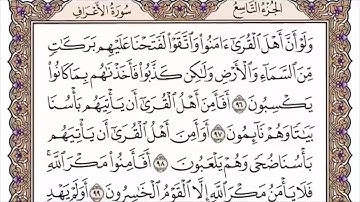 الجزء التاسع سورة الأعراف
وَلَوْ أَنَّ أَهْلَ ٱلْقُرَىٰٓ ءَامَنُوا۟ وَٱتَّقَوْا۟ لَفَتَحْنَا عَلَيْهِم بَرَكَٰتٍ
مِّنَ ٱلسَّمَآءِ وَٱلْأَرْضِ وَلَٰكِن كَذَّبُوا۟ فَأَخَذْنَٰهُم بِمَا كَانُوا۟
يَكْسِبُونَ ٩٦ أَفَأَمِنَ أَهْلُ ٱلْقُرَىٰٓ أَن يَأْتِيَهُم بَأْسُنَا
بَيَٰتًا وَهُمْ نَآئِمُونَ ٩٧ أَوَأَمِنَ أَهْلُ ٱلْقُرَىٰٓ أَن يَأْتِيَهُم
بَأْسُنَا ضُحًى وَهُمْ يَلْعَبُونَ ٩٨ أَفَأَمِنُوا۟ مَكْرَ ٱللَّهِ ۚ
فَلَا يَأْمَنُ مَكْرَ ٱللَّهِ إِلَّا ٱلْقَوْمُ ٱلْخَٰسِرُونَ ٩٩ أَوَلَمْ يَهْدِ